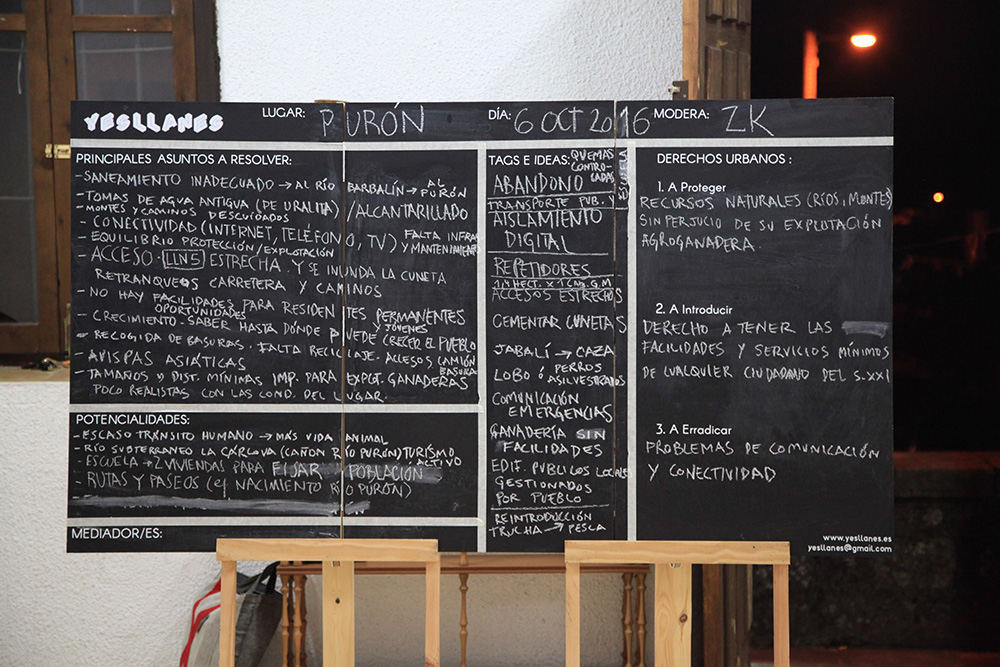 YESLLANES
LUGAR: PURÓN
DÍA: 6 OCT 2016
MODERA: ZK
PRINCIPALES ASUNTOS A RESOLVER:
- SANEAMIENTO INADECUADO → AL RÍO BARBALÍN → AL PURÓN
- TOMAS DE AGUA ANTIGUA (DE URALITA) / ALCANTARILLADO
- MONTES Y CAMINOS DESCUIDADOS
- CONECTIVIDAD (INTERNET, TELÉFONO, TV) FALTA INFRA Y MANTENIMIENTO
- EQUILIBRIO PROTECCIÓN/EXPLOTACIÓN
- ACCESO - LLN5 ESTRECHA. Y SE INUNDA LA CUNETA
RETRANQUEOS CARRETERA Y CAMINOS
- NO HAY FACILIDADES PARA RESIDENTES PERMANENTES
OPORTUNIDADES Y JÓVENES
- CRECIMIENTO - SABER HASTA DÓNDE PUEDE CRECER EL PUEBLO
- RECOGIDA DE BASURAS. FALTA RECICLAJE. ACCESOS CAMIÓN BASURA
- AVISPAS ASIÁTICAS
- TAMAÑOS Y DIST. MÍNIMAS IMP. PARA EXPLOT. GANADERAS
POCO REALISTAS CON LAS COND. DEL LUGAR.
POTENCIALIDADES:
- ESCASO TRÁNSITO HUMANO → MÁS VIDA ANIMAL
- RÍO SUBTERRANEO LA CÁRCOVA (CAÑON RÍO PURÓN) TURISMO ACTIVO
- ESCUELA → 2 VIVIENDAS PARA FIJAR POBLACIÓN
- RUTAS Y PASEOS (ej NACIMIENTO RÍO PURÓN)
MEDIADOR/ES:
TAGS E IDEAS: QUEMAS CONTROLADAS
ABANDONO
TRANSPORTE PUB. Y ESCUELA
AISLAMIENTO
DIGITAL
REPETIDORES
1 HECT. x 1 G.M
ACCESOS ESTRECHOS
CEMENTAR CUNETAS
JABALÍ → CAZA
LOBO ó PERROS ASILVESTRADOS
COMUNICACIÓN
EMERGENCIAS
GANADERÍA SIN
FACILIDADES
EDIF. PUBLICOS LOCALES
GESTIONADOS
POR PUEBLO
REINTRODUCCIÓN
TRUCHA → PESCA
DERECHOS URBANOS :
1. A Proteger
RECURSOS NATURALES (RÍOS, MONTES)
SIN PERJUICIO DE SU EXPLOTACIÓN
AGROGANADERA.
2. A Introducir
DERECHO A TENER LAS
FACILIDADES Y SERVICIOS MÍNIMOS
DE CUALQUIER CIUDADANO DEL S.XXI
3. A Erradicar
PROBLEMAS DE COMUNICACIÓN
Y CONECTIVIDAD
www.yesllanes.es
yesllanes@gmail.com